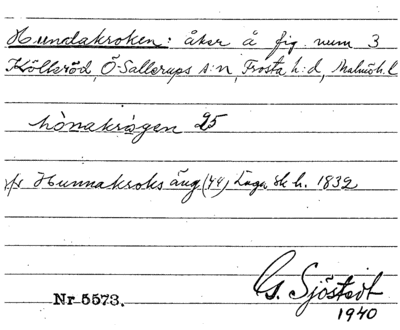 Hundakroken: åker å fig num 3
Kölleröd, Ö. Sallerups s:n, Frosta h:d, Malmöh. l
hònakrògen 25
Hunnakroks äng (44) Laga sk h. 1832
G. Sjöstedt
Nr 5573.
1940